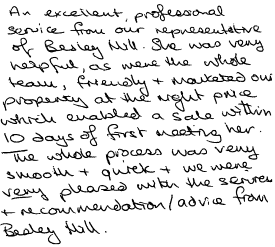 An excellent, professional
service from our representative
of Besley Hill. She was very
helpful, as were the whole
team, friendly + marketed our
property at the right price
which enabled a sale within
10 days of first meeting her.
The whole process was very
smooth + quick + we were
very pleased with the service
+ recommendation/advice from
Besley Hill.